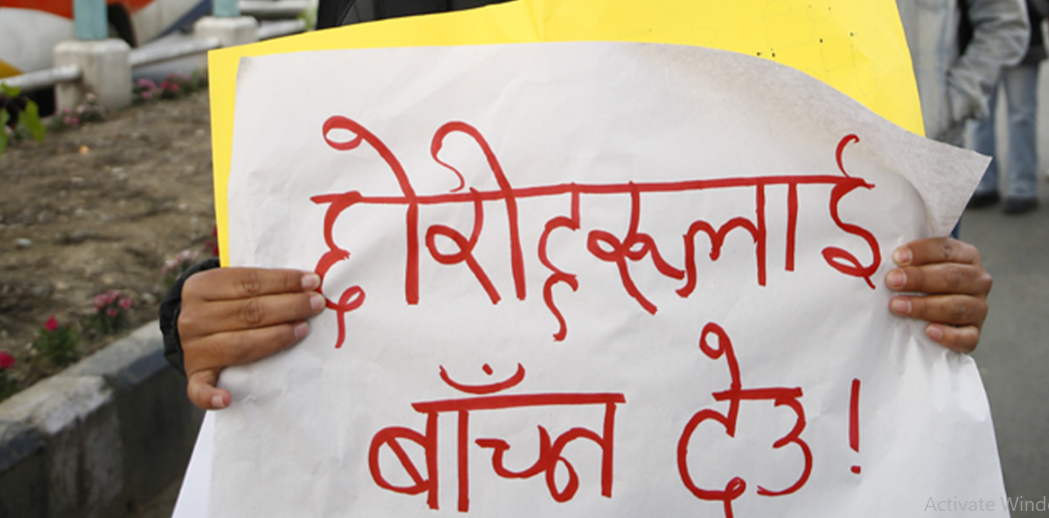 छोरीहरूलाई
बाँच्न देउ!
Activate